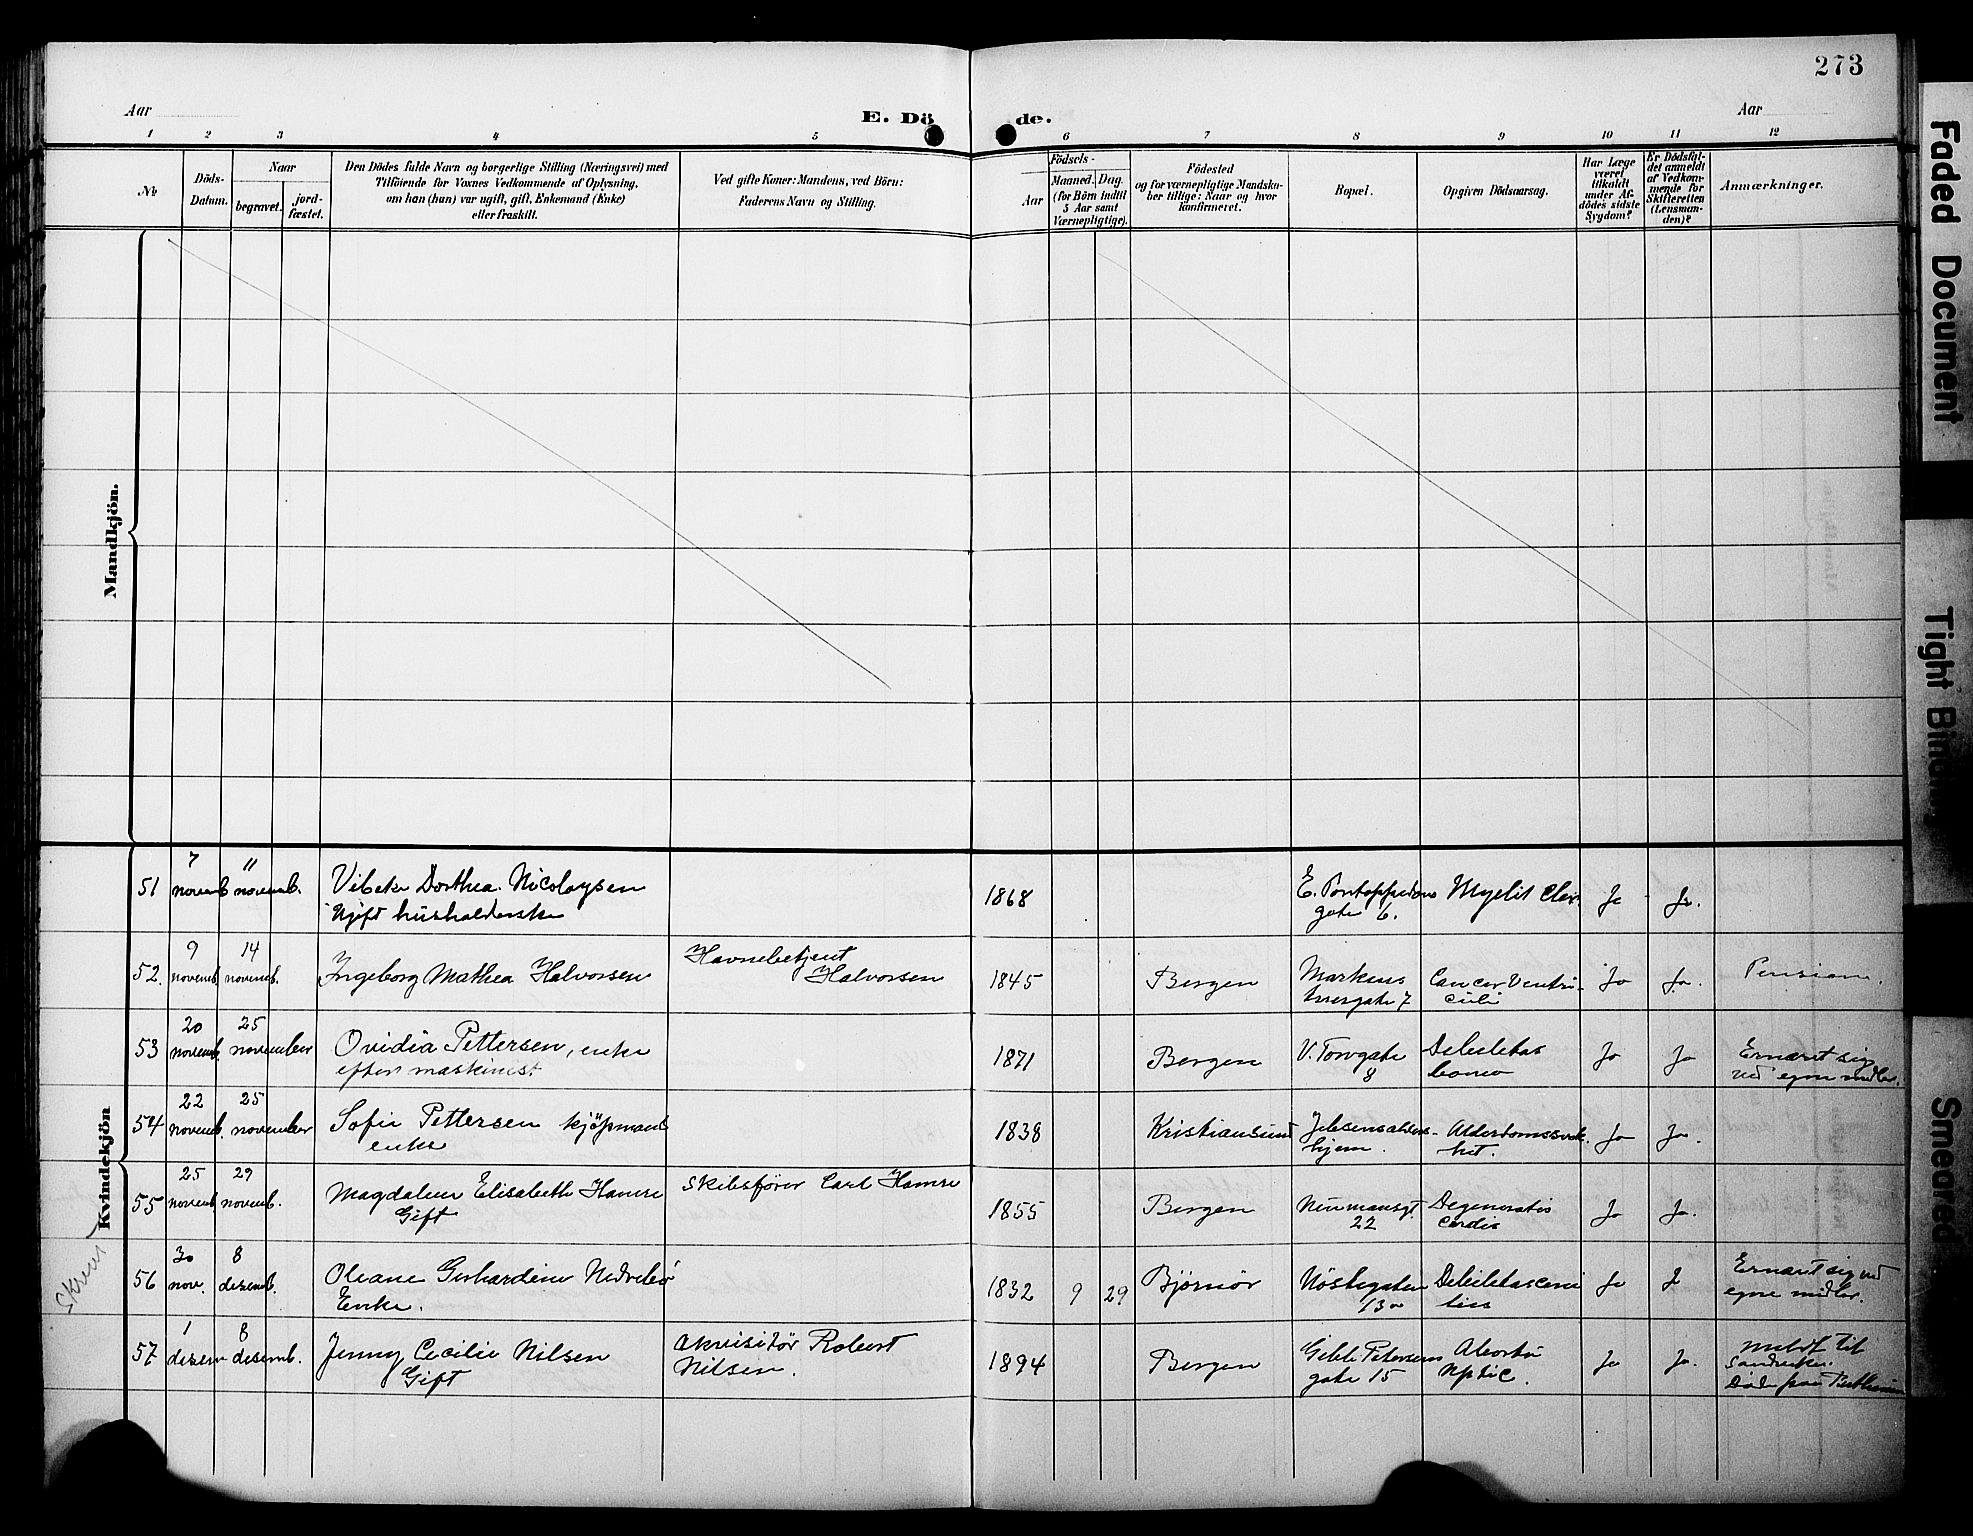 273
Aar
E. Dö de.
Aar
1 2 3 4 5 6 7 8 9 10 11 12
No
Döds-
Datum.
Naar
begravet.
jord-
fæstet.
Den Dödes fulde Navn og borgerlige Stilling (Næringsvei) med
Tilföiende for Voxnes Vedkommende af Oplysning,
om han (hun) var ugift, gift, Enkemand (Enke)
eller fraskilt.
Ved gifte Koner: Mandens, ved Börn:
Faderens Navn og Stilling.
Födsels-
Aar
Maaned. Dag.
(for Börn indtil
5 Aar samt
Værnepligtige).
Födested
og for værnepligtige Mandska-
ber tillige: Naar og hvor
konfirmeret.
Bopæl.
Opgiven Dödsaarsag.
Har Læge
været
tilkaldt
under Af-
dödes sidste
Sygdom?
Er Dödsfal-
det anmeldt
af Vedkom-
mende for
Skifteretten
(Lensman-
den)?
Anmærkninger.
Mandkjön.
Kvindekjön
51
7
novemb
11
novemb.
Vibeke Dorthea Nicolaysen
Ugift husholderske
1868
E. Pontoppidans
gate 6.
Myelit
Ja
Ja.
52.
9
novemb.
14
novemb.
Ingeborg Mathea Halvorsen
Havnebetjent
Halvorsen
1845
Bergen
Markens
tvergate 7
Cancer Ventri-
culi
Ja
Ja.
Pension.
53
20
novemb.
25
november
Ovidia Pettersen, enke
efter maskinist
1871
Bergen
V. Torvgate
8
Debilitas
Ja
Ja
Ernæret sig
ved egne midler.
54
22
novemb.
25
november
Sofie Pettersen kjöpmands
enke
1838
Kristiansund
Jebsens
hjem.
Alderdomssvak-
het.
Ja
Ja.
55
25
novemb
29
novemb.
Magdalene Elisabeth Hamre
Gift
Skibsfører Carl Hamre
1855
Bergen
Neumansgt.
22
Degeneratio
Cordis
Ja
Ja.
56
30
nov.
8
dezemb.
Oleane Gerhardine Nedrebø
Enke.
1832
9
29
Bjørnør
Nöstegaten
13
Debilitas seni
lis
Ja
Ja
Ernæret sig ved
egne midler.
57
1
dezem
8
desemb.
Jenny Cecilie Nilsen
Gift
Akvisitør Robert
Nilsen.
1894
Bergen
Gabl. Petersens
gate 15
Abortus
Ja
Ja.
meldt til
Død paa
Faded Document
Tight Bin
Smeared